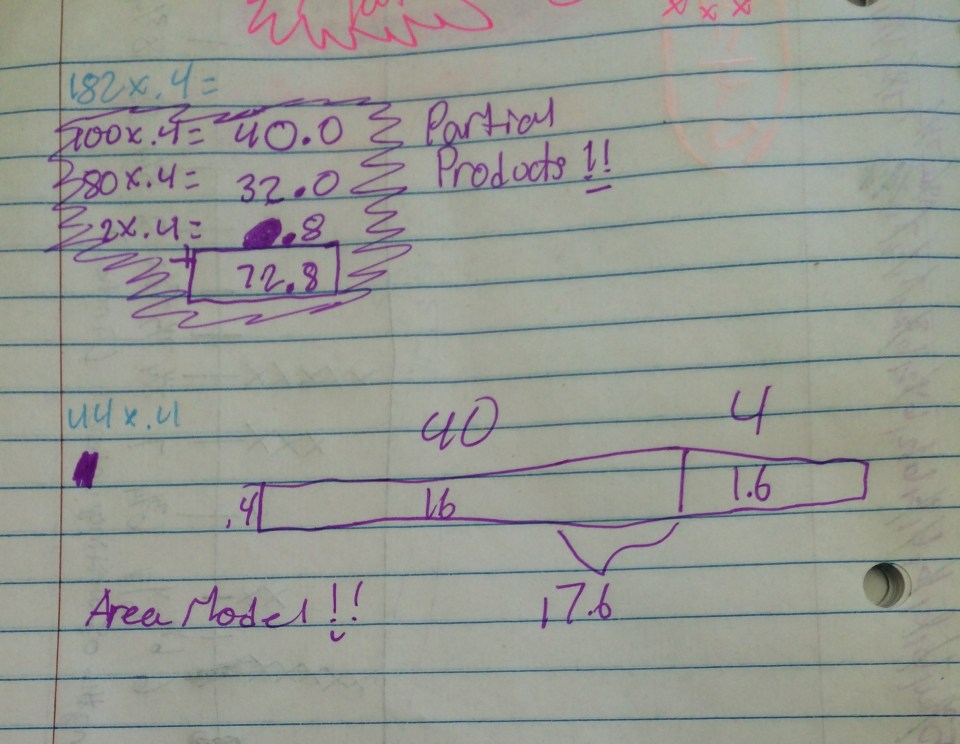 182x.4=
100x.4= 40.0 Partial
80x.4= 32.0 Products !!
2x.4= .8
+ 72.8
44x.4
40 4
.4 16 1.6
17.6
Area Model !!